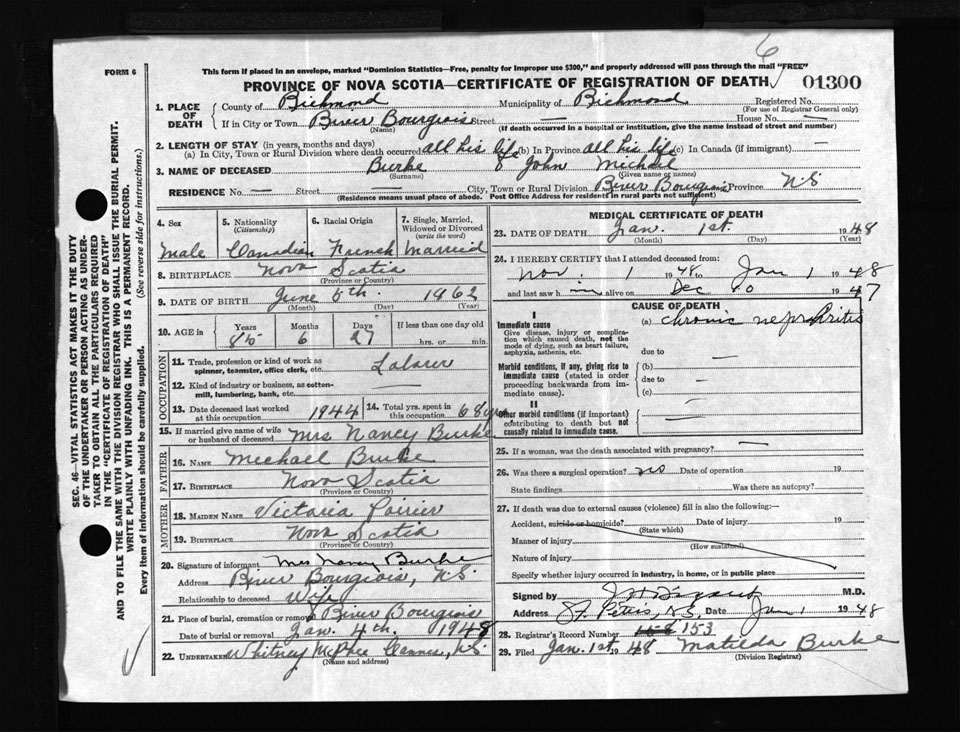 6
FORM 6
This form if placed in an envelope, marked "Dominion Statistics—Free, penalty for improper use $300," and properly addressed will pass through the mail "FREE"
PROVINCE OF NOVA SCOTIA—CERTIFICATE OF REGISTRATION OF DEATH 01300
SEC. 46—VITAL STATISTICS ACT MAKES IT THE DUTY
OF THE UNDERTAKER OR PERSON ACTING AS UNDER-
TAKER TO OBTAIN ALL THE PARTICULARS REQUIRED
IN THE "CERTIFICATE OF REGISTRATION OF DEATH"
AND TO FILE THE SAME WITH THE DIVISION REGISTRAR WHO SHALL ISSUE THE BURIAL PERMIT.
WRITE PLAINLY WITH UNFADING INK. THIS IS A PERMANENT RECORD.
Every item of information should be carefully supplied. (See reverse side for instructions.)
1. PLACE OF DEATH County of Richmond Municipality of Richmond Registered No.
(For use of Registrar General only)
If in City or Town River Bourgeois Street — House No. —
(Name) (If death occurred in a hospital or institution, give the name instead of street and number)
2. LENGTH OF STAY (in years, months and days)
(a) In City, Town or Rural Division where death occurred all his life (b) In Province all his life (c) In Canada (if immigrant) —
3. NAME OF DECEASED Burke John Michael
(Surname) (Given name or names)
RESIDENCE No. — Street — City, Town or Rural Division River Bourgeois Province N.S
(Residence means usual place of abode. Post Office Address for residents in rural parts not sufficient)
4. Sex 5. Nationality (Citizenship) 6. Racial Origin 7. Single, Married, Widowed or Divorced (write the word)
Male Canadian French Married
8. BIRTHPLACE Nova Scotia
(Province or Country)
9. DATE OF BIRTH June 5th 1962
(Month) (Day) (Year)
10. AGE in Years Months Days If less than one day old
85 6 27 hrs. or min.
OCCUPATION
11. Trade, profession or kind of work as spinner, teamster, office clerk, etc. Laborer
12. Kind of industry or business, as cotton-mill, lumbering, bank, etc.
13. Date deceased last worked at this occupation 1944 14. Total yrs. spent in this occupation 68 yrs
15. If married give name of wife or husband of deceased Mrs Nancy Burke
FATHER
16. NAME Michael Burke
17. BIRTHPLACE Nova Scotia
(Province or Country)
MOTHER
18. MAIDEN NAME Victoria Poirier
19. BIRTHPLACE Nova Scotia
(Province or Country)
20. Signature of informant Mrs Nancy Burke
Address River Bourgeois, N.S.
Relationship to deceased Wife
21. Place of burial, cremation or removal River Bourgeois
Date of burial or removal Jan. 4th. 1948
22. UNDERTAKER Whitney McPhee N.S.
(Name and address)
MEDICAL CERTIFICATE OF DEATH
23. DATE OF DEATH Jan. 1st. 1948
(Month) (Day) (Year)
24. I HEREBY CERTIFY that I attended deceased from:
Nov. 1 1948 to Jan 1 1948
and last saw him alive on Dec 1947
CAUSE OF DEATH
I
Immediate cause
Give disease, injury or complication which caused death, not the mode of dying, such as heart failure, asphyxia, asthenia, etc.
(a) chronic nephritis
due to —
Morbid conditions, if any, giving rise to immediate cause (stated in order proceeding backwards from immediate cause).
(b)
due to —
(c)
II
Other morbid conditions (if important) contributing to death but not causally related to immediate cause.
25. If a woman, was the death associated with pregnancy? —
26. Was there a surgical operation? no Date of operation 19
State findings Was there an autopsy?
27. If death was due to external causes (violence) fill in also the following:—
Accident, suicide or homicide? Date of injury 19
(State which)
Manner of injury
(How sustained)
Nature of injury
Specify whether injury occurred in industry, in home, or in public place
Signed by M.D.
Address St. Peters, N.S. Date Jan 1 1948
28. Registrar's Record Number 153
29. Filed Jan. 1st 1948 Matilda Burke
(Division Registrar)